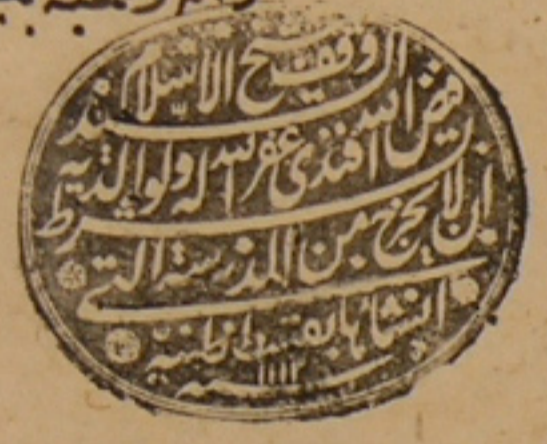 وقف شيخ الاسلام السيد
فيض الله افندى غفر الله له ولوالديه بشرط
ان لا يخرج من المدرسة التى
انشاها بقسطنطينية
سنة ١١١٢